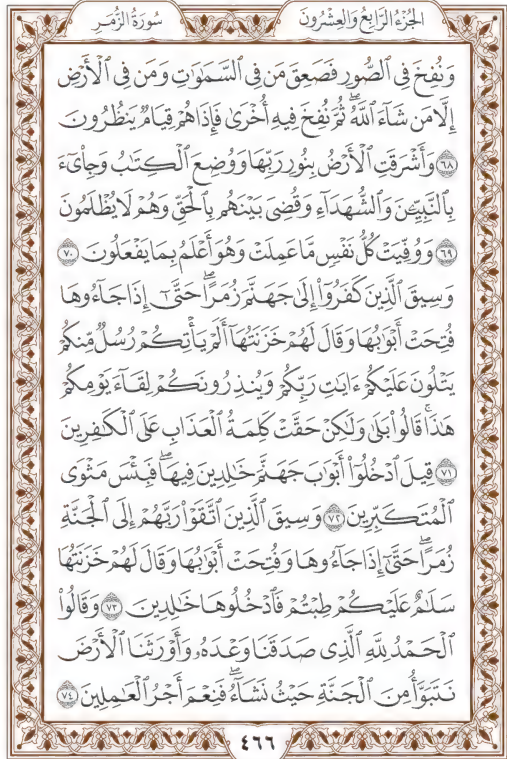 الجُزْءُ الرَّابِعُ وَالعِشْرُونَ
سُورَةُ الزُّمَرِ
وَنُفِخَ فِى ٱلصُّورِ فَصَعِقَ مَن فِى ٱلسَّمَٰوَٰتِ وَمَن فِى ٱلْأَرْضِ
إِلَّا مَن شَآءَ ٱللَّهُۖ ثُمَّ نُفِخَ فِيهِ أُخْرَىٰ فَإِذَا هُمْ قِيَامٌ يَنظُرُونَ
٦٨ وَأَشْرَقَتِ ٱلْأَرْضُ بِنُورِ رَبِّهَا وَوُضِعَ ٱلْكِتَٰبُ وَجِا۟ىٓءَ
بِٱلنَّبِيِّـۧنَ وَٱلشُّهَدَآءِ وَقُضِىَ بَيْنَهُم بِٱلْحَقِّ وَهُمْ لَا يُظْلَمُونَ
٦٩ وَوُفِّيَتْ كُلُّ نَفْسٍ مَّا عَمِلَتْ وَهُوَ أَعْلَمُ بِمَا يَفْعَلُونَ ٧٠
وَسِيقَ ٱلَّذِينَ كَفَرُوٓا۟ إِلَىٰ جَهَنَّمَ زُمَرًاۖ حَتَّىٰٓ إِذَا جَآءُوهَا
فُتِحَتْ أَبْوَٰبُهَا وَقَالَ لَهُمْ خَزَنَتُهَآ أَلَمْ يَأْتِكُمْ رُسُلٌ مِّنكُمْ
يَتْلُونَ عَلَيْكُمْ ءَايَٰتِ رَبِّكُمْ وَيُنذِرُونَكُمْ لِقَآءَ يَوْمِكُمْ
هَٰذَاۚ قَالُوا۟ بَلَىٰ وَلَٰكِنْ حَقَّتْ كَلِمَةُ ٱلْعَذَابِ عَلَى ٱلْكَٰفِرِينَ
٧١ قِيلَ ٱدْخُلُوٓا۟ أَبْوَٰبَ جَهَنَّمَ خَٰلِدِينَ فِيهَاۖ فَبِئْسَ مَثْوَى
ٱلْمُتَكَبِّرِينَ ٧٢ وَسِيقَ ٱلَّذِينَ ٱتَّقَوْا۟ رَبَّهُمْ إِلَى ٱلْجَنَّةِ
زُمَرًاۖ حَتَّىٰٓ إِذَا جَآءُوهَا وَفُتِحَتْ أَبْوَٰبُهَا وَقَالَ لَهُمْ خَزَنَتُهَا
سَلَٰمٌ عَلَيْكُمْ طِبْتُمْ فَٱدْخُلُوهَا خَٰلِدِينَ ٧٣ وَقَالُوا۟
ٱلْحَمْدُ لِلَّهِ ٱلَّذِى صَدَقَنَا وَعْدَهُۥ وَأَوْرَثَنَا ٱلْأَرْضَ
نَتَبَوَّأُ مِنَ ٱلْجَنَّةِ حَيْثُ نَشَآءُۖ فَنِعْمَ أَجْرُ ٱلْعَٰمِلِينَ ٧٤
٤٦٦